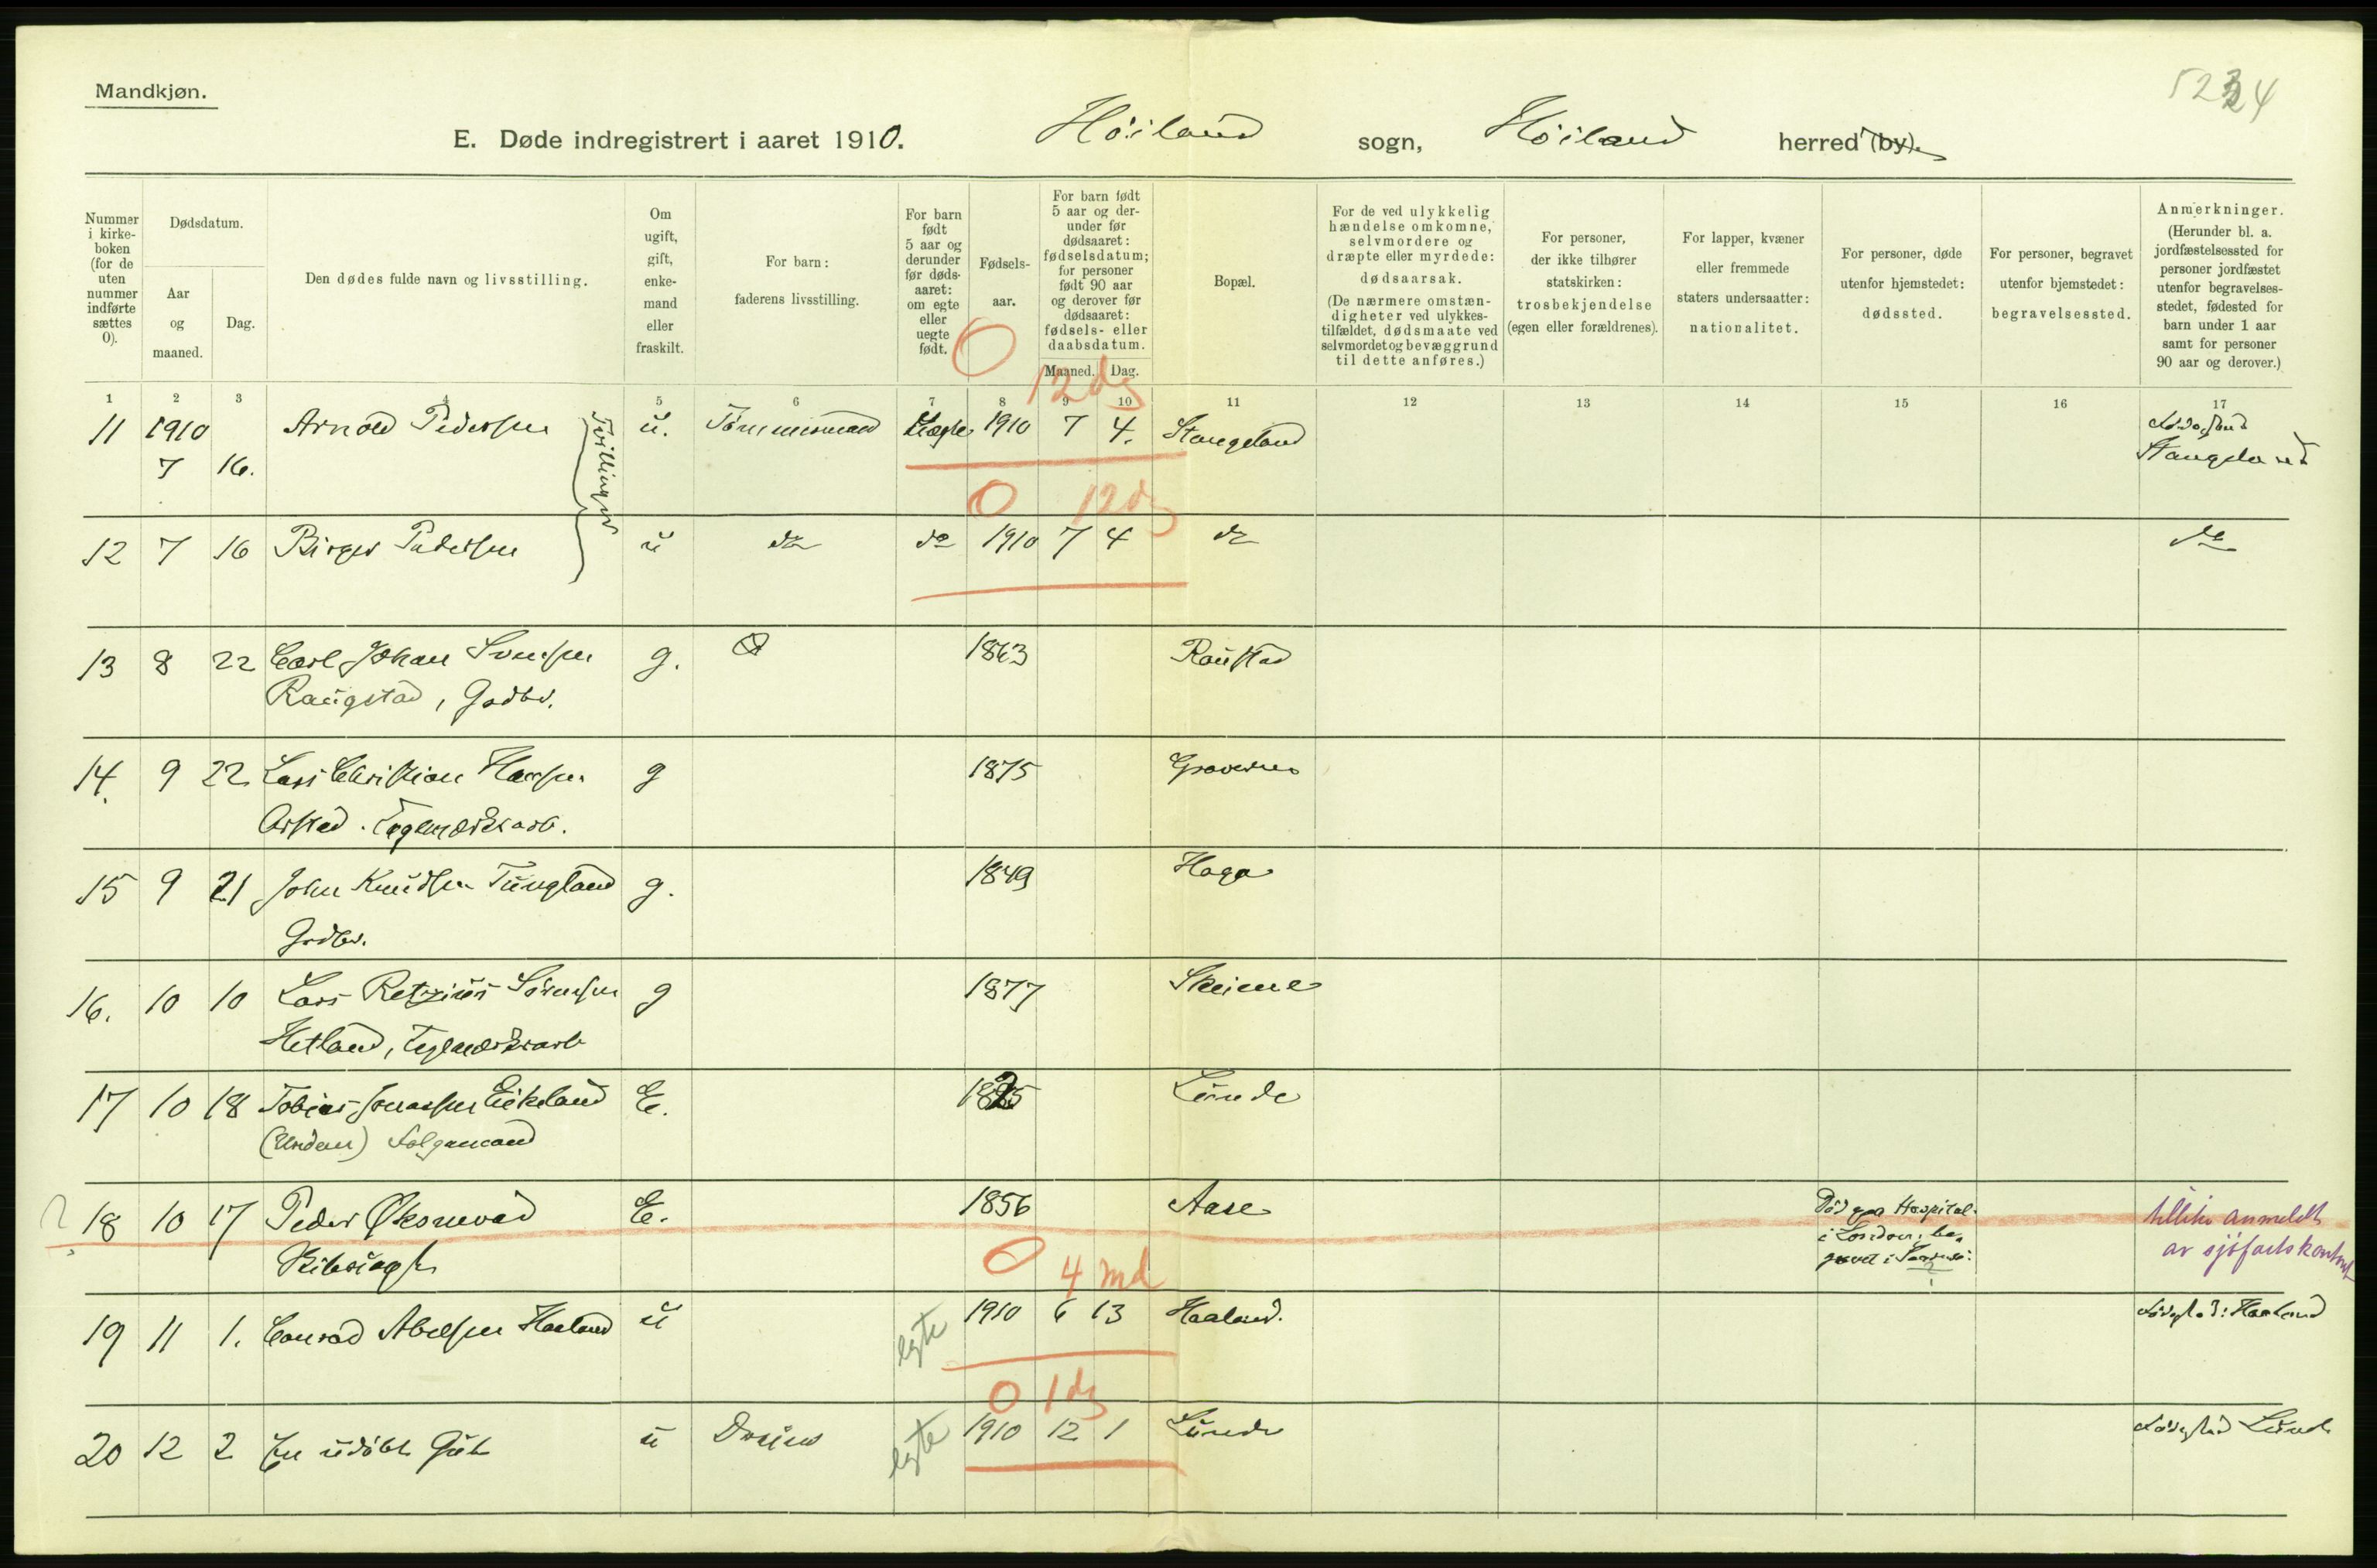 Mandkjøn.
5234
E. Døde indregistrert i aaret 1910. Höiland sogn, Höiland herred (by).
Nummer i kirke-boken (for de uten nummer indførte sættes 0).
Dødsdatum.
Aar og maaned.
Dag.
Den dødes fulde navn og livsstilling.
Om ugift, gift, enke-mand eller fraskilt.
For barn: faderens livsstilling.
For barn født 5 aar og derunder før døds-aaret: om egte eller uegte født.
Fødsels-aar.
For barn født 5 aar og der-under før dødsaaret: fødselsdatum; for personer født 90 aar og derover før dødsaaret: fødsels- eller daabsdatum.
Maaned. Dag.
Bopæl.
For de ved ulykkelig hændelse omkomne, selvmordere og dræpte eller myrdede: dødsaarsak. (De nærmere omstæn-digheter ved ulykkes-tilfældet, dødsmaate ved selvmordet og bevæggrund til dette anføres.)
For personer, der ikke tilhører statskirken: trosbekjendelse (egen eller forældrenes).
For lapper, kvæner eller fremmede staters undersaatter: nationalitet.
For personer, døde utenfor hjemstedet: dødssted.
For personer, begravet utenfor hjemstedet: begravelsessted.
Anmerkninger. (Herunder bl. a. jordfæstelsessted for personer jordfæstet utenfor begravelses-stedet, fødested for barn under 1 aar samt for personer 90 aar og derover.)
1 2 3 4 5 6 7 8 9 10 11 12 13 14 15 16 17
0 12 dg
11 1910 7 16. Arnold Pedersen u. Tömmermand Uegte 1910 7 4. Stangeland Födested Stangeland
Tvillinger
0 12 dg
12 7 16 Birger Pedersen u do do 1910 7 4 do do
13 8 22 Carl Johan Svensen g. 1863 Raustad
Raugstad, Gadbr.
14. 9 22 Lars Christian Hansen g 1875 Graveren
Arstad. Teglverksarb.
15 9 21 John Knudsen Tungland g. 1849 Haga
Grdbr.
16. 10 10 Lars Retzius Sörensen g 1877 Skeiene
Hetland, Teglverksarb
17 10 18 Tobias Jonassen Eikeland E. 1825 Lunde
(Undem) Folgemand
? 18 10 17 Peder Öksnevad E. 1856 Aase Död paa Hospital i London, be-gravet i
Skibskapt. tillike anmeldt av sjöfartskontoret
0 4 md
19 11 1. Conrad Abelsen Haaland u egte 1910 6 13 Haaland. Födested: Haaland
0 1 dg
20 12 2 En udöbt Gut u egte 1910 12 1 Lunde Födested Lunde